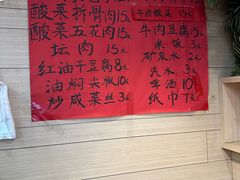 酸菜拆骨肉15元
酸菜五花肉15元
坛肉15元
红油干豆腐8元
油焖尖椒10元
炒咸菜丝3元
牛肉酸菜15元
牛肉豆腐15元
米饭3元
矿泉水2元
汽水3元
啤酒10元
纸巾1元